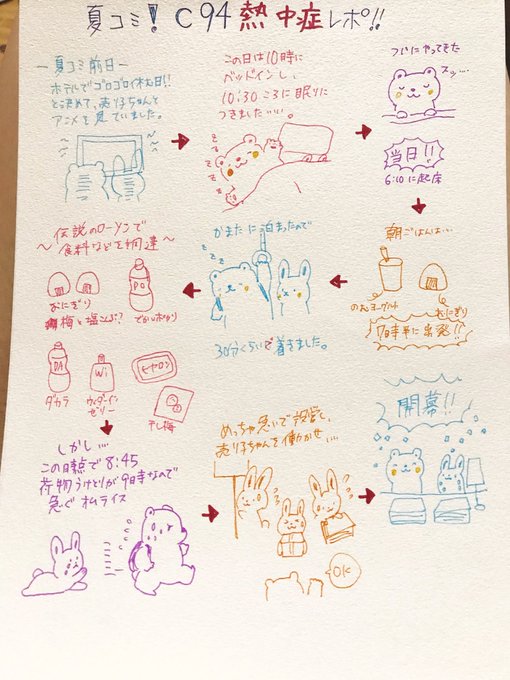 夏コミ! C94熱中症レポ!!
－夏コミ前日－
ホテルでゴロゴロイ休む日!!
と決めて、売り子ちゃんと
アニメを見ていました。
この日は10時に
ベッドインし、
10:30ころに眠りに
つきました…。
zzzz
ついにやってきた
スッ…
当日!!
6:10に起床
朝ごはんは…
のむヨーグルト
おにぎり
7時半に出発!!
かまたに泊まったので
zzz
30分くらいで着きました。
伝説のローソンで
～食料などを調達～
おにぎり
梅と塩こんぶ?
PO
でかいポカリ
DA
ダカラ
Wi
ウィダーイン
ゼリー
干し梅
しかし…
この時点で8:45
荷物うけとりが9時なので
急ぐオムライス
めっちゃ急いで設営し、
売り子ちゃんを働かせ…
OK
開幕!!